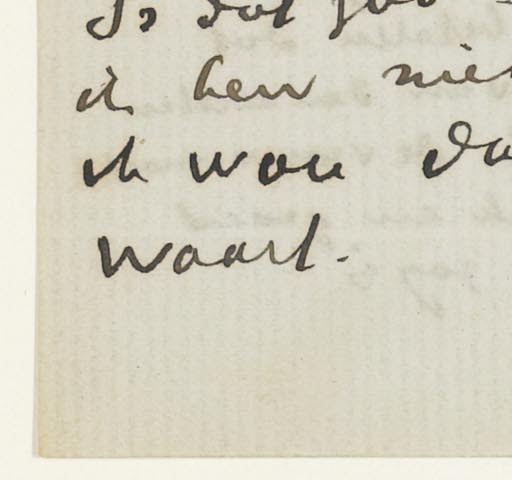 Is dat goe
ik ben nie
ik wou da
waart.